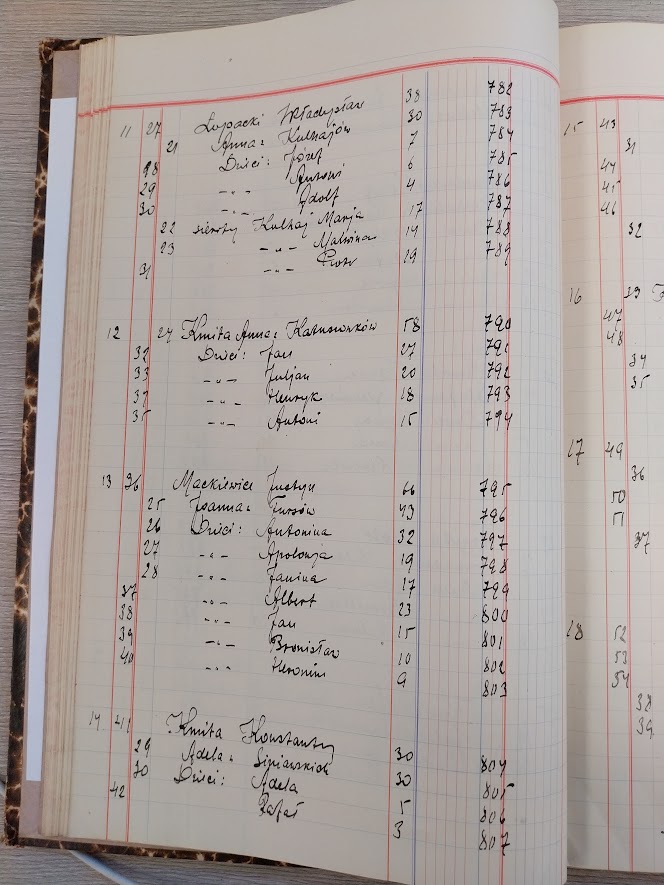 11 27 Łopacki Władysław 38 782
21 Anna z Kulhajów 30 783
28 Dzieci: Józef 7 784
29 -"- Antoni 6 785
30 -"- Adolf 4 786
22 sieroty Kulhaj Marja 17 787
23 -"- Malwina 14 788
31 -"- Piotr 19 789
12 24 Kmita Anna z 58 790
32 Dzieci: Jan 27 791
33 -"- Juljan 20 792
34 -"- Henryk 18 793
35 -"- Antoni 15 794
13 36 Mackiewicz Justyn 66 795
25 Joanna z Tursów 43 796
26 Dzieci: Antonina 32 797
27 -"- Apolonja 19 798
28 -"- Janina 17 799
37 -"- Albert 23 800
38 -"- Jan 15 801
39 -"- Bronisław 10 802
40 -"- Heronim 9 803
14 41 Kmita Konstanty 30 804
29 Adela z 30 805
30 Dzieci: Adela 5 806
42 Rafał 3 807
15 43
31
44
45
46
32
16 33
47
48
34
35
17 49
36
50
51
37
18 52
53
54
38
39